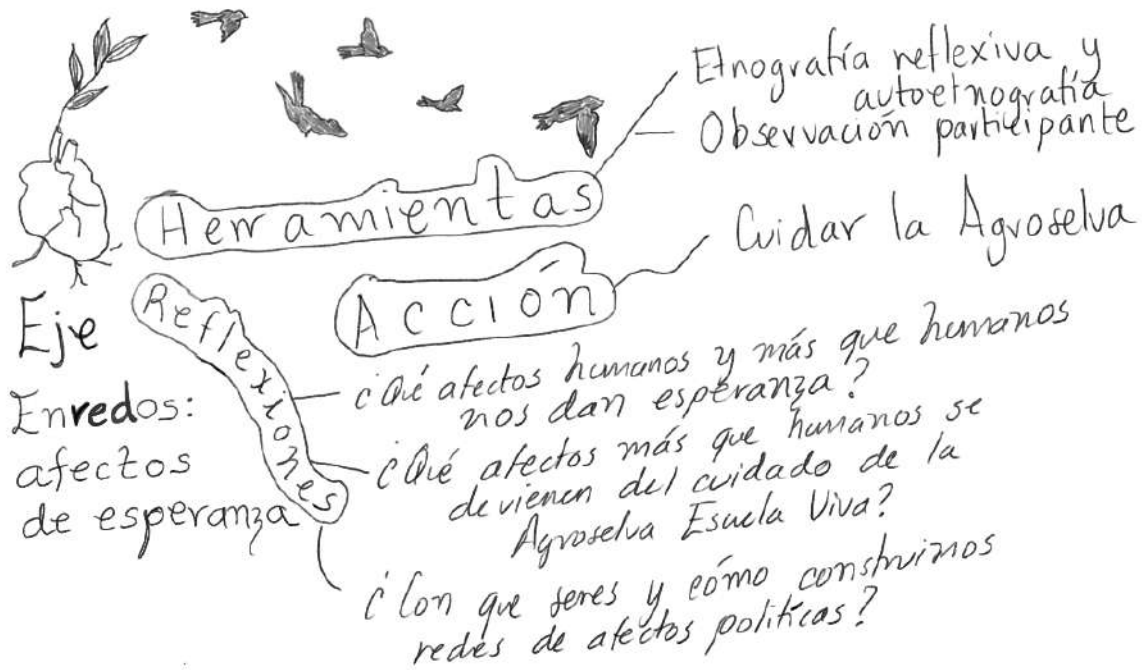 Etnografía reflexiva y
autoetnografía
Observación participante
Herramientas
Cuidar la Agroselva
Acción
Eje
Enredos:
afectos
de esperanza
Reflexiones
¿Qué afectos humanos y más que humanos
nos dan esperanza?
¿Qué afectos más que humanos se
devienen del cuidado de la
Agroselva Escuela Viva?
¿Con que seres y cómo construimos
redes de afectos políticas?